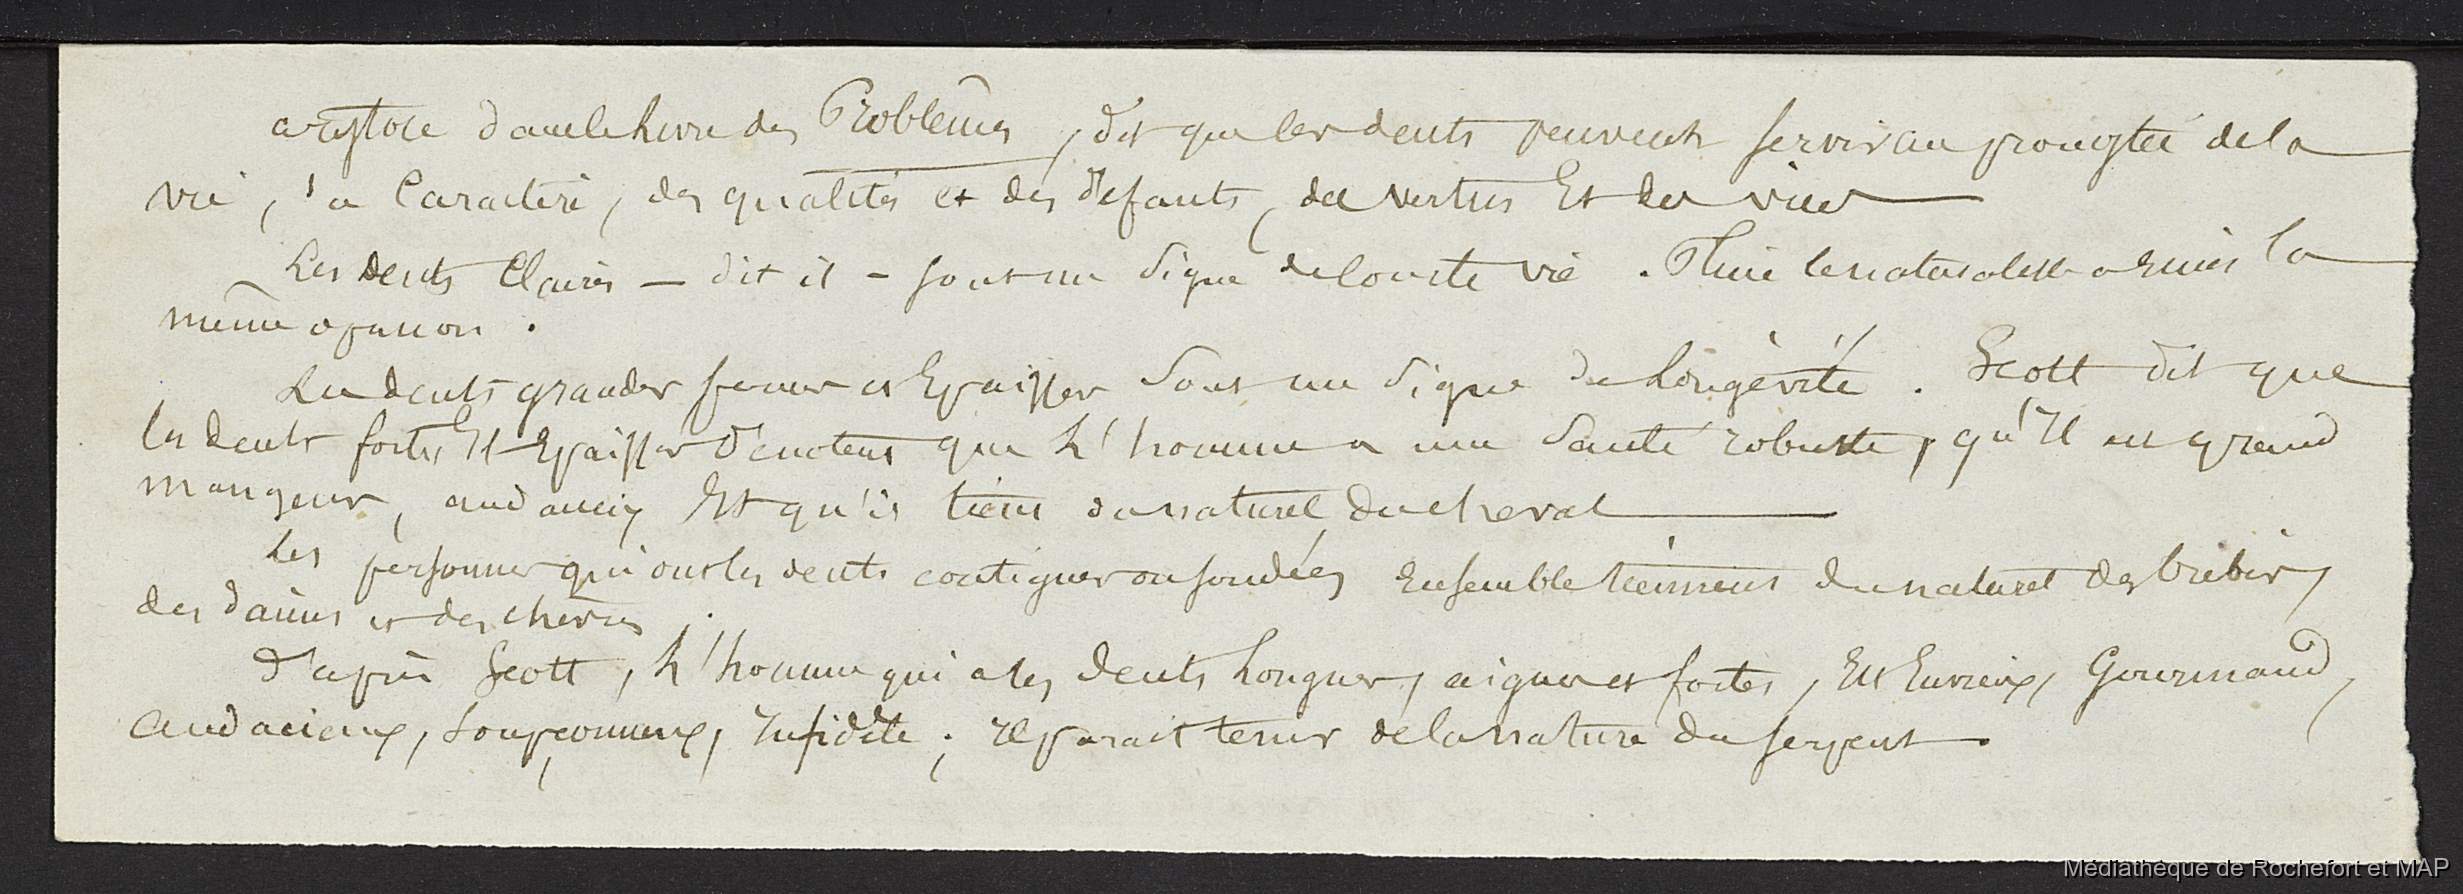 aristote dans le livre des Problêmes, dit que les dents peuvent servir au pronostic de la
vie, du Caractère, des qualités et des défauts, des vertus Et des vices
Les dents Claires — dit il — sont un signe de courte vie. Pline le naturaliste a emis la
même opinion.
Les dents grandes fermes et Epaisses sont un signe de Longévité. Scott dit que
les dents fortes Et Epaisses dénotent que L'homme a une santé robuste, qu'Il est grand
mangeur, audacieux Et qu'il tient du naturel du cheval
Les personnes qui ont les dents contigues ou soudées Ensemble tiennent du naturel des brebis,
des daims et des chèvres.
D'après Scott, L'homme qui a les dents Longues, aigues et fortes, Est Envieux, Gourmand,
Audacieux, Soupçonneux, Infidèle; Il parait tenir de la nature du serpent.
Médiathèque de Rochefort et MAP